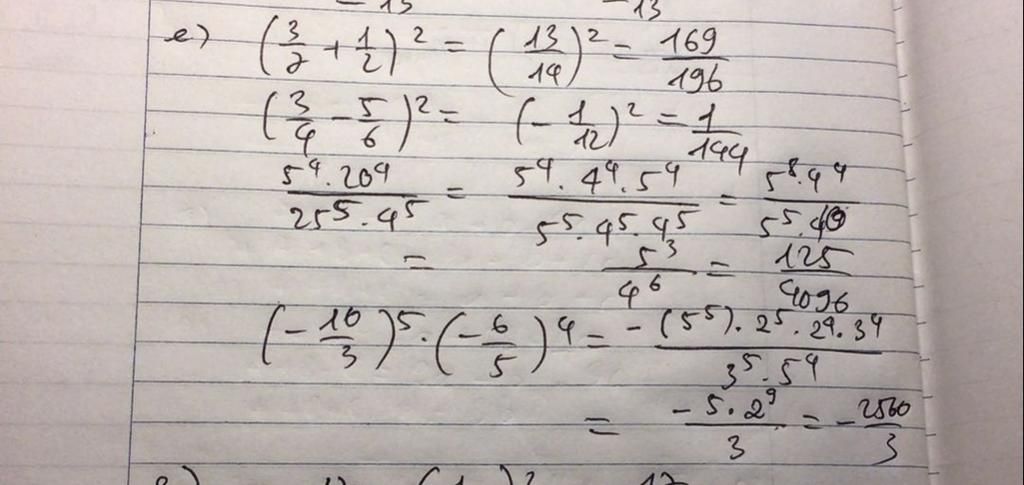 e) (3/7 + 1/2)^2 = (13/14)^2 = 169/196
(3/4 - 5/6)^2 = (-1/12)^2 = 1/144
5^4 · 20^4 / 25^5 · 4^5 = 5^4 · 4^4 · 5^4 / 5^5 · 4^5 · 4^5 = 5^8 · 4^4 / 5^5 · 4^10
= 5^3 / 4^6 = 125/4096
(-10/3)^5 · (-6/5)^4 = -(5^5) · 2^5 · 2^4 · 3^4 / 3^5 · 5^4
= -5 · 2^9 / 3 = -2560/3